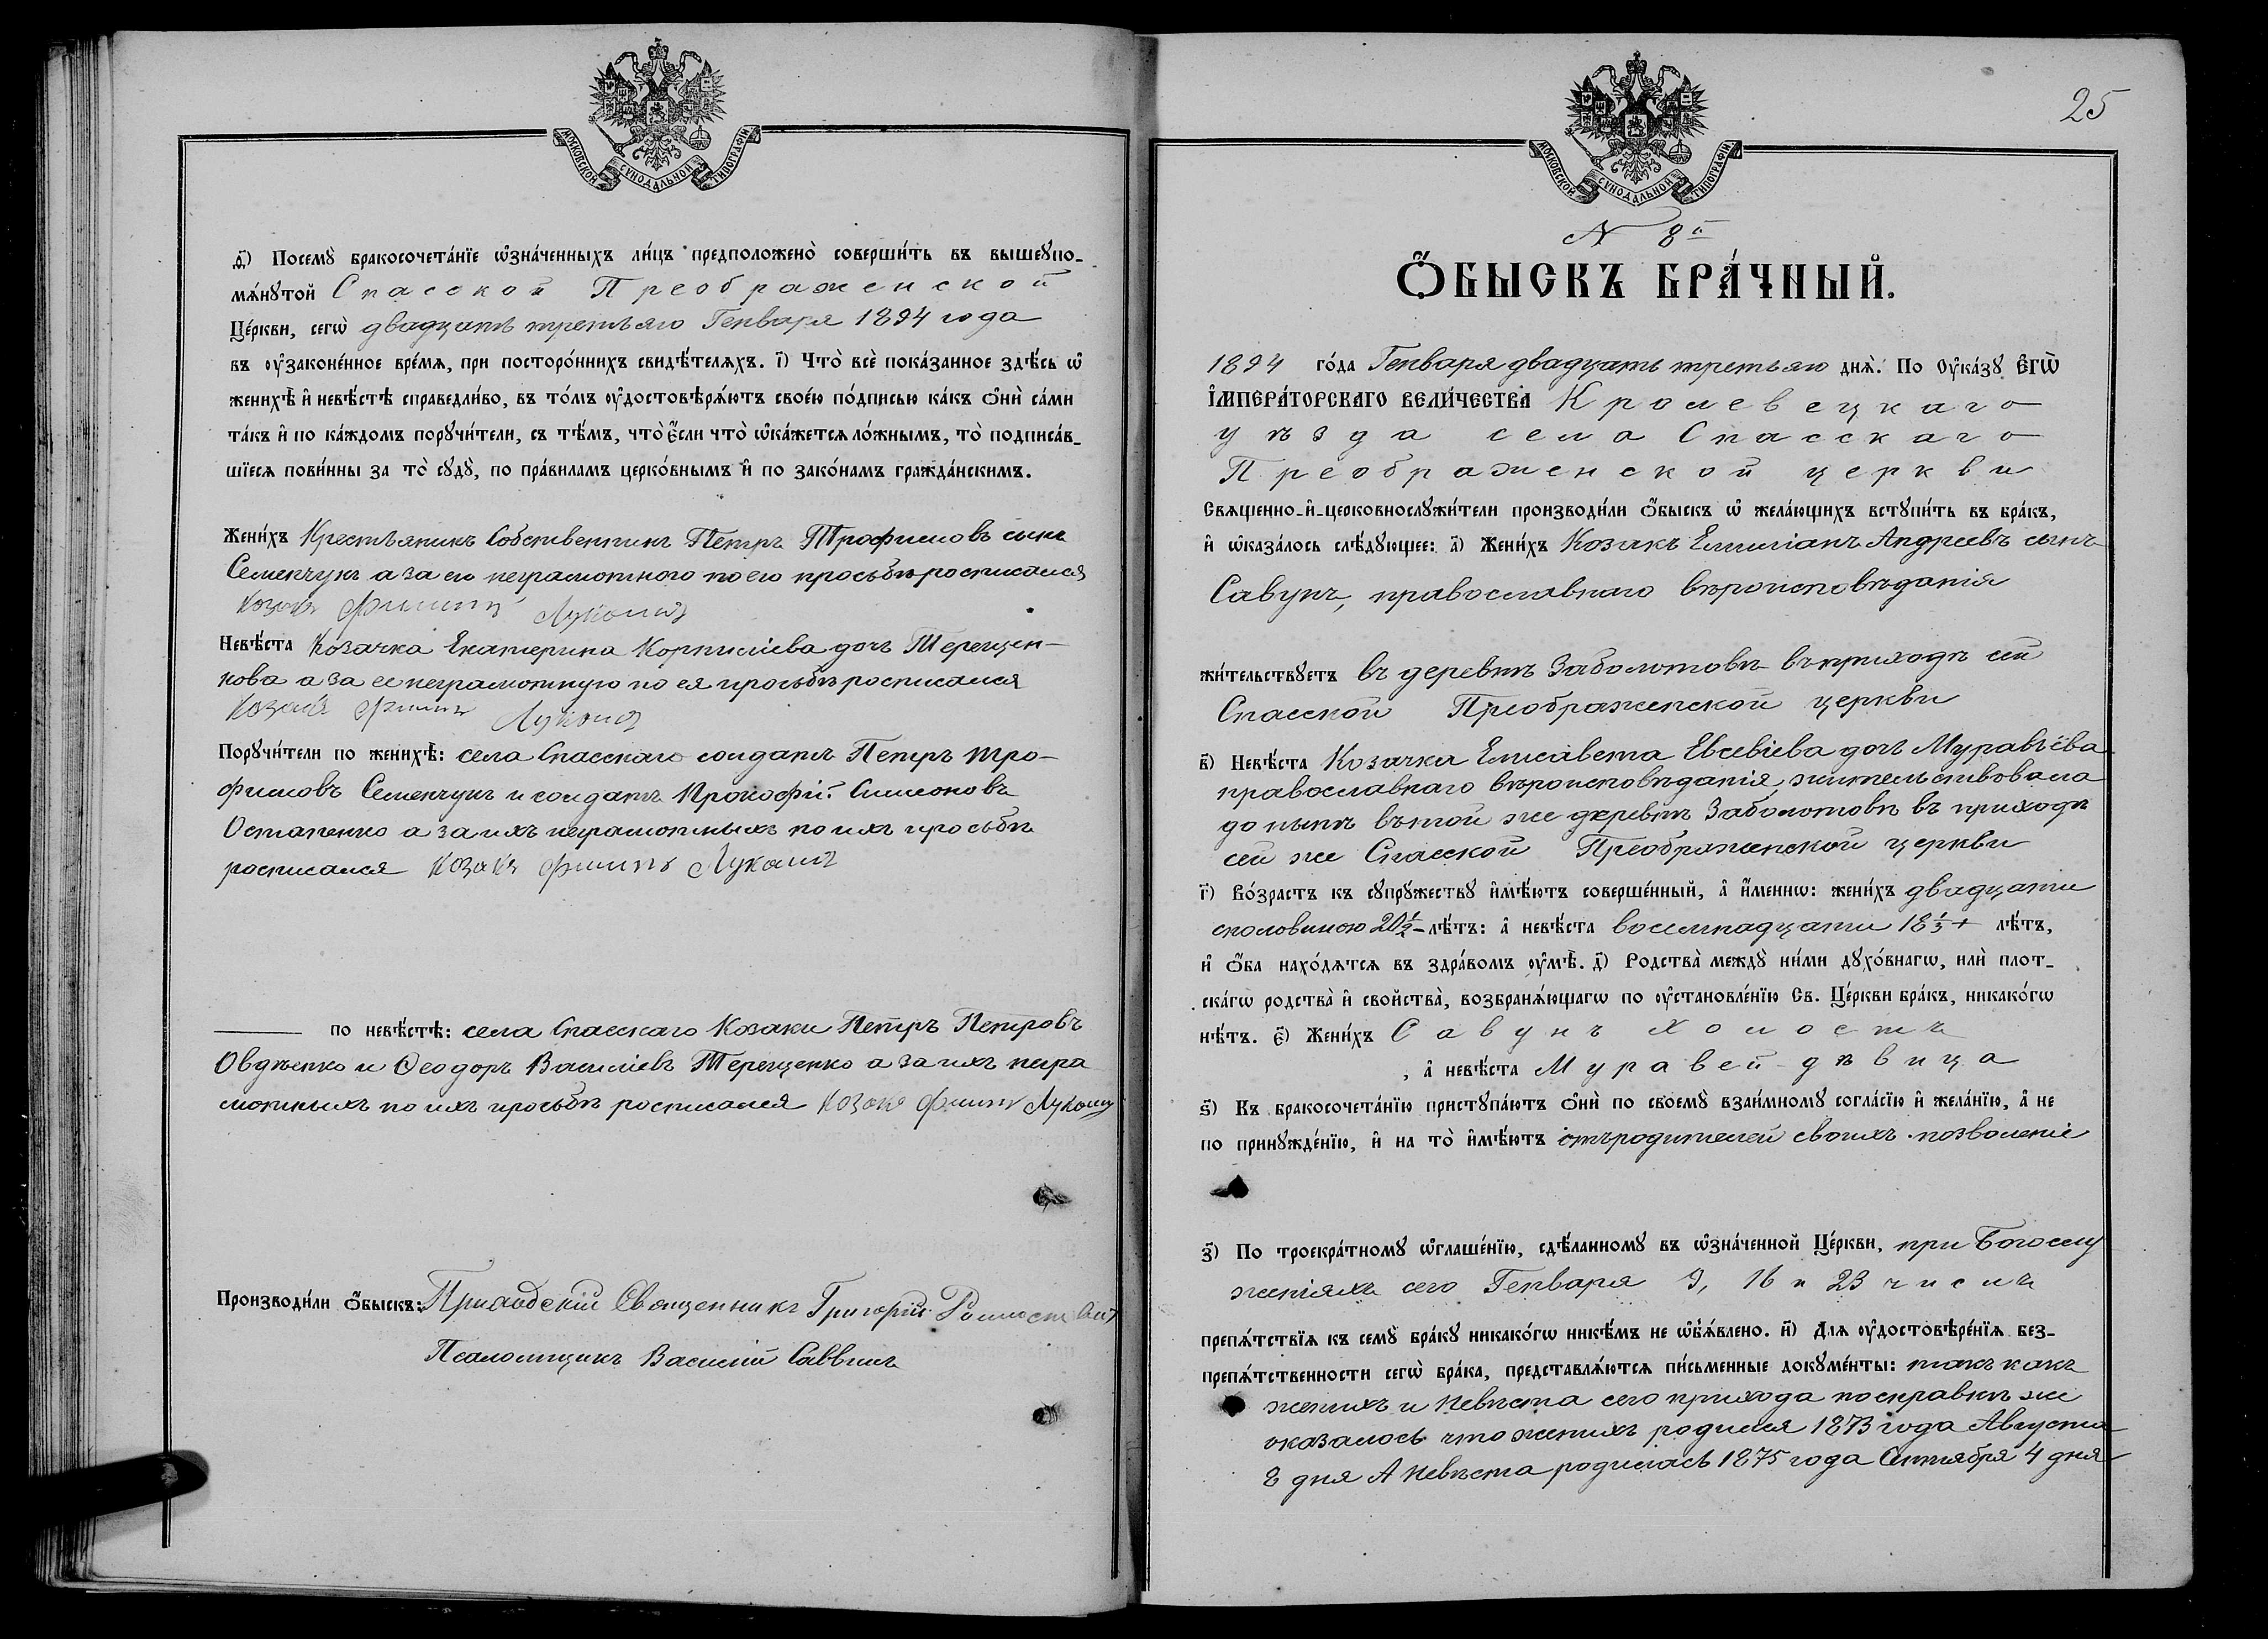 МОСКОВСКОЙ СѴНОДАЛЬНОЙ ТИПОГРАФІИ
д҃і) Посемꙋ̀ бракосочета́нїе ѡ҆зна́ченныхъ ли́цъ предположено̀ соверши́ть въ вышеꙋпо-
мѧ́нꙋтой Спасской Преображенской
Це́ркви, сегѡ̀ двадцать третьяго Генваря 1894 года
въ ᲂу҆законе́нное вре́мѧ, при посторо́ннихъ свидѣ́телѧхъ. і҃) Что̀ всѐ пока́занное здѣ́сь ѡ҆
женихѣ̀ и҆ невѣ́стѣ справедли́во, въ то́мъ ᲂу҆достовѣрѧ́ютъ свое́ю по́дписью ка́къ ѻ҆нѝ са́ми
та́къ и҆ по ка́ждомъ порꙋчи́тели, съ тѣ́мъ, что̀ є҆́сли что̀ ѡ҆ка́жетсѧ ло́жнымъ, то̀ подписа́в-
шїесѧ пови́нны за то̀ сꙋдꙋ̀, по пра́виламъ церко́внымъ и҆ по зако́намъ гражда́нскимъ.
Жени́хъ Крестьянинъ Собственникъ Петръ Трофимовъ сынъ
Семенчукъ а за его неграмотного по его просьбѣ росписался
Козакъ Филипъ
Невѣ́ста Козачка Екатерина Корниліева дочь Терещен-
кова а за ее неграмотную по ея просьбѣ росписался
Козакъ Филипъ
Порꙋчи́тели по женихѣ̀: села Спасскаго солдатъ Петръ Тро-
фимовъ Семенчукъ и солдатъ Прокофій Симоновъ
Остапенко а за ихъ неграмотныхъ по ихъ просьбѣ
росписался Козакъ Филипъ
по невѣ́стѣ: села Спасскаго Козаки Петръ Петровъ
Овдѣенко и Ѳеодоръ Василіевъ Терещенко а за ихъ негра
мотныхъ по ихъ просьбѣ росписался Козакъ Филипъ
Производи́ли ѻ҆́быскъ: Приходскій Священникъ Григорій
Псаломщикъ Василій Саввичъ
25
МОСКОВСКОЙ СѴНОДАЛЬНОЙ ТИПОГРАФІИ
N 8й
Ѻ҆́БЫСКЪ БРА́ЧНЫЙ.
1894 го́да Генваря двадцать третьяго днѧ̀. По ᲂу҆ка́зꙋ Є҆ГѠ̀
І҆МПЕРА́ТОРСКАГО ВЕЛИ́ЧЕСТВА Кролевецкаго
уѣзда села Спасскаго
Преображенской церкви
Свѧщенно-и҆-церковнослꙋжи́тели производи́ли ѻ҆́быскъ ѡ҆ жела́ющихъ встꙋпи́ть въ бра́къ,
и҆ ѡ҆каза́лось слѣ́дꙋющее: а҃) Жени́хъ Козакъ Емиліанъ Андреевъ сынъ
Савунъ, православнаго вѣроисповѣданія
жи́тельствꙋетъ въ деревнѣ Заболотовѣ въ приходѣ сей
Спасской Преображенской церкви
в҃) Невѣ́ста Козачка Елисавета Евсевіева дочь Муравьева
православнаго вѣроисповѣданія, жительствовала
до нынѣ въ той же деревнѣ Заболотовѣ въ приходѣ
сей же Спасской Преображенской церкви
г҃) Во́зрастъ къ сꙋпрꙋ́жествꙋ и҆мѣ́ютъ соверше́нный, а҆ и҆́меннѡ: жени́хъ двадцати
сполов­иною 20½ - лѣ́тъ: а҆ невѣ́ста восемнадцати 18⅓ + лѣ́тъ,
и҆ ѻ҆́ба нахо́дѧтсѧ въ здра́вомъ ᲂу҆мѣ̀. д҃) Родства̀ междꙋ̀ ни́ми дꙋхо́внагѡ, илѝ плот-
ска́гѡ родства̀ и҆ свойства̀, возбранѧ́ющагѡ по ᲂу҆становле́нїю Св. Це́ркви бра́къ, никако́гѡ
нѣ́тъ. є҃) Жени́хъ Савунъ холостъ
, а҆ невѣ́ста Муравей - дѣвица
ѕ҃) Къ бракосочета́нїю пристꙋпа́ютъ ѻ҆нѝ по своемꙋ̀ взаи́мномꙋ согла́сїю и҆ жела́нїю, а҆ не
по принꙋжде́нїю, и҆ на то̀ и҆мѣ́ютъ отъ родителей своихъ позволеніе
з҃) По троекра́тномꙋ ѡ҆глаше́нїю, сдѣ́ланномꙋ въ ѡ҆зна́ченной Це́ркви, при Богослу
женіяхъ сего Генваря 9, 16 и 23 числъ
препѧ́тствїѧ къ семꙋ̀ бра́кꙋ никако́гѡ никѣ́мъ не ѡ҆б̾ѧ́влено. и҃) Для ᲂу҆достовѣре́нїѧ без-
препѧ́тственности сегѡ̀ бра́ка, представлѧ́ютсѧ пи́сьменные докꙋме́нты: такъ какъ
женихъ и невѣста сего прихода по справкѣ же
оказалось что женихъ родился 1873 года Августа
8 дня А невѣста родилась 1875 года Сентября 4 дня